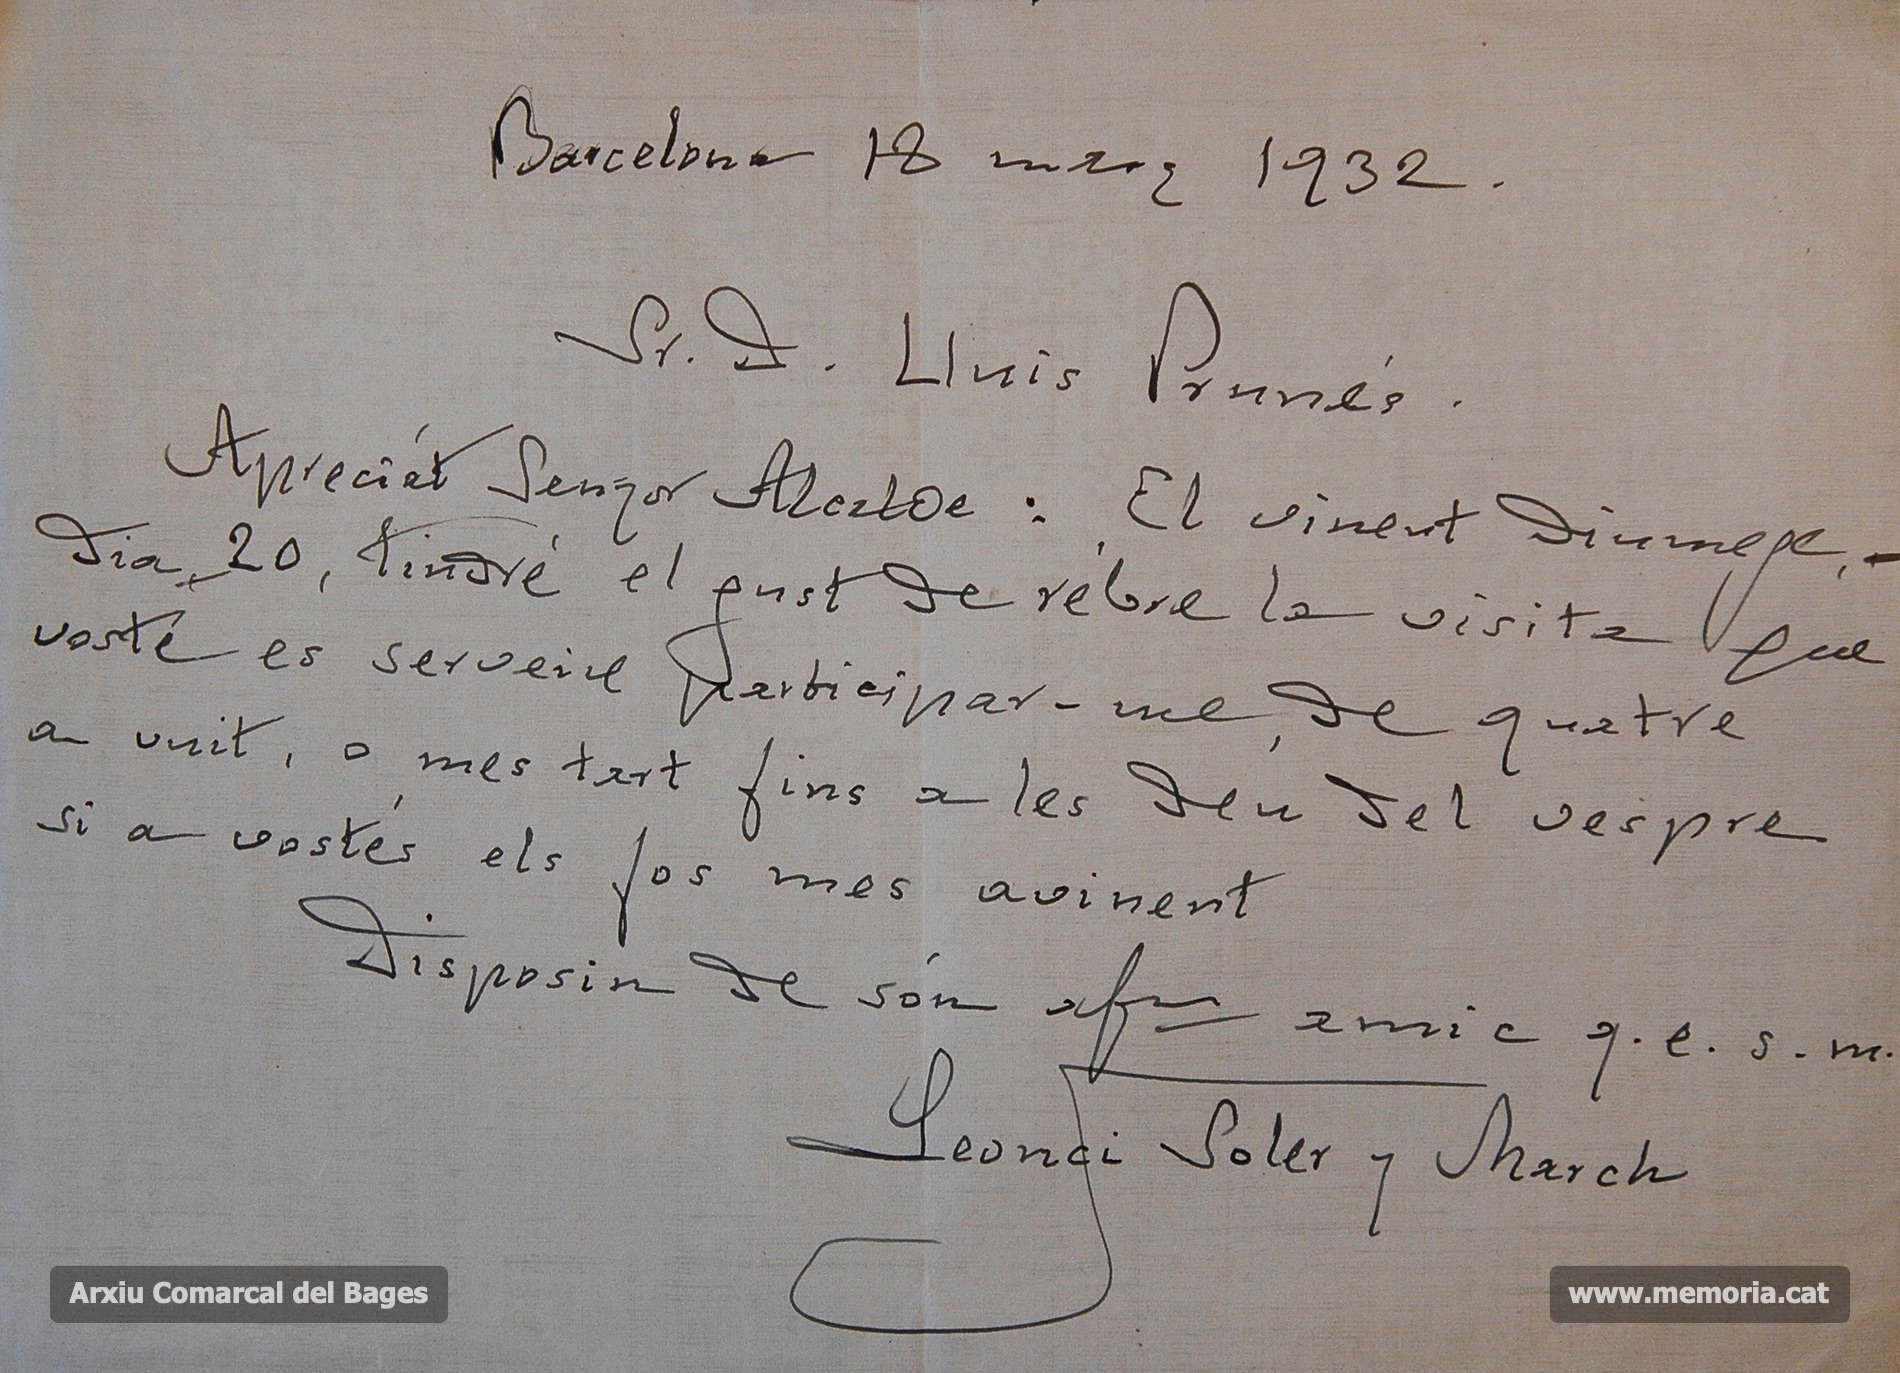 Barcelona 18 març 1932.
Sr. D. Lluis Prunés.
Apreciát Senyor Alcalde: El vinent Diumege, -
dia, 20, tindré el gust de rébre la visita que
vosté es serveixe participar-me, de quatre
a vuit, o mes tart fins a les deu del vespre
si a vostés els fos mes avinent
Disposin de són afm amic q.e.s.m.
Leonci Soler y March
Arxiu Comarcal del Bages
www.memoria.cat